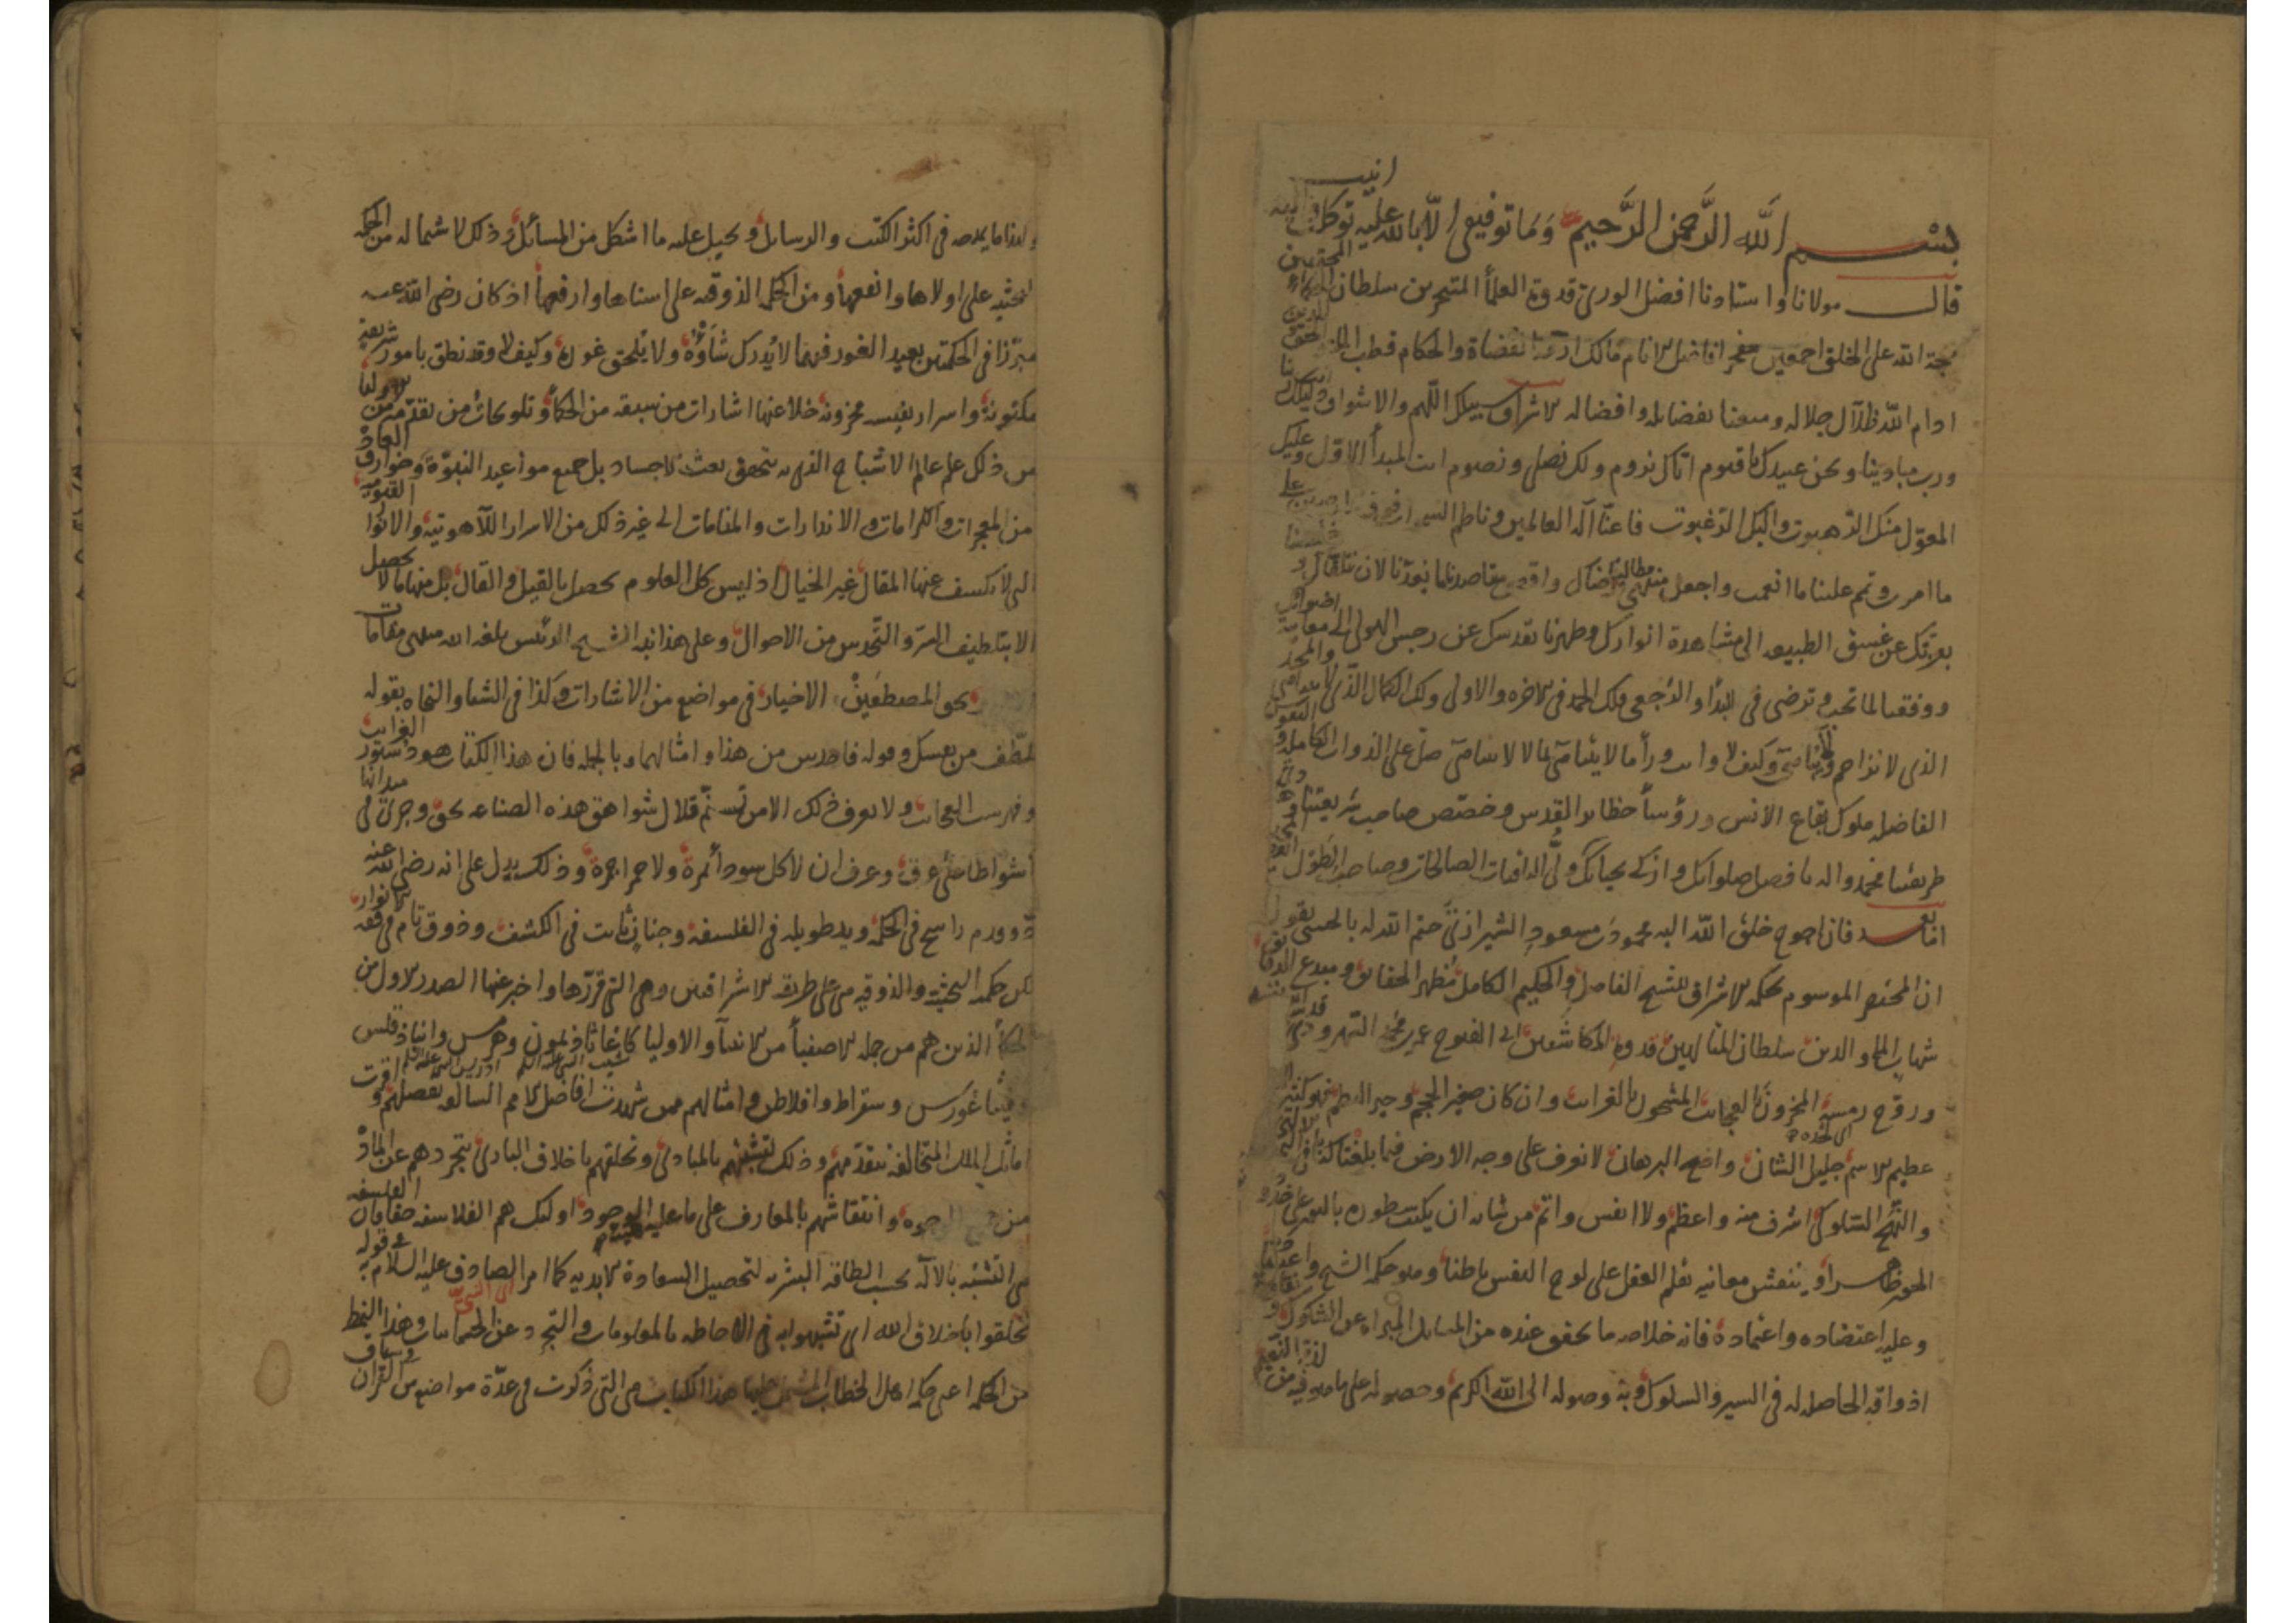 بسم الله الرحمن الرحيم وما توفيقي الا بالله عليه توكلت واليه انيب
قال مولانا واستادنا افضل الورى قدوة العلماء المتبحرين سلطان الحكماء المجتهدين
حجة الله على الخلق اجمعين مفخر افاضل الانام مالك القضاة والحكام قطب الملة والحق والدين
ادام الله ظلال جلاله ومتعنا بفضايله وافضاله الاشراق سبيلك اللهم والاشواق دليلك
ورب مبادينا ونحن عبيدك يا قيوم اياك نروم ولك نصلي ونصوم انت المبدأ الاول وعليك
المعول منك الرهبوت واليك الرغبوت فاعنا اله العالمين وناظم
ما امرت وتمم علينا ما انعمت واجعل منتهى مطالبنا رضاك واقصى مقاصدنا ما يعدنا لان نلقاك
بعزتك عن غسق الطبيعه الى مشاهدة انوارك وطهرنا بقدسك عن رجس الهيولى الى معاينة اضوائك
ووفقنا لما تحب وترضى في البدأ والرجعى فلك الحمد في الاخره والاولى ولك الكمال الذي لا يتناهى والمجد
الذي لا يزاحم ولا يناهى وكيف لا وانت ورأ ما لا يتناهى بما لا يتناهى صل على الذوات الكامله والنفوس
الفاضله ملوك بقاع الانس ورؤسأ حظاير القدس وخصص صاحب شريعتنا وهادى
طريقتنا محمد واله بافضل صلواتك وازكى تحياتك ولي الباقيات الصالحات وصاحب الطول
اما بعد فان احوج خلق الله اليه محمود بن مسعود الشيرازي ختم الله له بالحسنى يقول
ان المختصر الموسوم بحكمه الاشراق للشيخ الفاضل والحكيم الكامل مظهر الحقايق ومبدع الدقايق
شهاب المله والدين سلطان المتالهين قدوة المكاشفين ابى الفتوح عمر بن محمد السهروردى قدس الله نفسه
وروح رمسه المخزون بالعجايب المشحون بالغرايب وان كان صغير الحجم وجيز النظم فهو كثير العلم
عظيم الاسم جليل الشان واضح البرهان لا نعرف على وجه الارض فيما بلغنا كتابا في
والنهج السلوكي اشرف منه واعظم ولا انفس واتم من شانه ان يكتب سطوره بالنور على خدود
الحور ظاهرا وينقش معانيه بقلم العقل على لوح النفس باطنا وهو حكمة الشيخ واعتقاده
وعليه اعتضاده واعتماده فانه خلاصه ما تحقق عنده من المسايل المبراه عن الشكوك
اذواقه الحاصله له في السير والسلوك وبه وصوله الى الله الكريم وحصوله على ما هو فيه من لذة النعيم
ولهذا ما يمدحه في اكثر الكتب والرسايل ويحيل عليه ما اشكل من المسائل وذلك لاشتماله من الحكمه
البحثيه على اولاها وانفعها ومن الحكمه الذوقيه على اسناها وارفعها اذ كان رضى الله عنه
مبرزا في الحكمتين بعيد الغور فيهما لا يدرك شأوه ولا يلحق غوره وكيف لا وقد نطق بامور شريفة
مكنونة واسرار نفيسه مخزونه خلا عنها اشارات من سبقه من الحكمأ وتلويحات من تقدمه من الاوليا
من ذلك علم عالم الاشباح الذى به يتحقق بعث الاجساد بل جميع مواعيد النبوة وخوارق العاد
من المعجزات والكرامات والانذارات والمنامات الى غير ذلك من الاسرار اللاهوتيه والانوار القيوميه
التى لا يكشف عنها المقال غير الخيال اذ ليس كل العلوم يحصل بالقيل والقال بل منها ما لا يحصل
الا بتلطيف السر والتحدس من الاحوال وعلى هذا نبه الشيخ الرئيس بلغه الله منتهى مقامات
المصطفين الاخيار في مواضع من الاشارات وكذا في الشفا والنجاه بقوله
تلطف من نفسك وقوله فاحدس من هذا وامثالهما وبالجمله فان هذا الكتاب هو دستور الغرايب
وفهرست العجايب ولا يعرف ذلك الا من تسنم قلال شواهق هذه الصناعه بحق وجرى في ميدانها
اشواطا على عرق وعرف ان لا كل سودأ تمرة ولا حمرا جمرة وذلك يدل على انه رضى الله عنه
ذو قدم راسخ في الحكمة ويد طويله في الفلسفه وجنان ثابت في الكشف وذوق تام في فقه الانوار
لكن حكمه البحثيه والذوقيه هى على طريقه الاشراقيين وهى التى قررها واخبر عنها الصدر الاول من
الحكمأ الذين هم من جمله الاصفيأ من الانبيأ والاوليا كاغاثاذيمون وهرمس وانباذقلس
وفيثاغورس وسقراط وافلاطن وامثالهم ممن شهدت افاضل الامم السالفه بفضلهم واقرت
اماثل الملل المتخالفه بتقدمهم وذلك لتشبههم بالمبادى وتخلقهم باخلاق البارى بتجردهم عن الماد
من الوجوه وانتقاشهم بالمعارف على ما عليه الوجود اولئك هم الفلاسفه حقا فان الفلسفه
هى التشبه بالاله بحسب الطاقه البشريه لتحصيل السعادة الابديه كما امر الصادق عليه السلام في قوله
تخلقوا باخلاق الله اى تشبهوا به في الاحاطه بالمعلومات والتجرد عن الجسمانيات وهذا النمط
من الحكمه اعنى حكمه اهل الخطاب المشتمل عليها هذا الكتاب هى التى ذكرت في عدة مواضع من القران